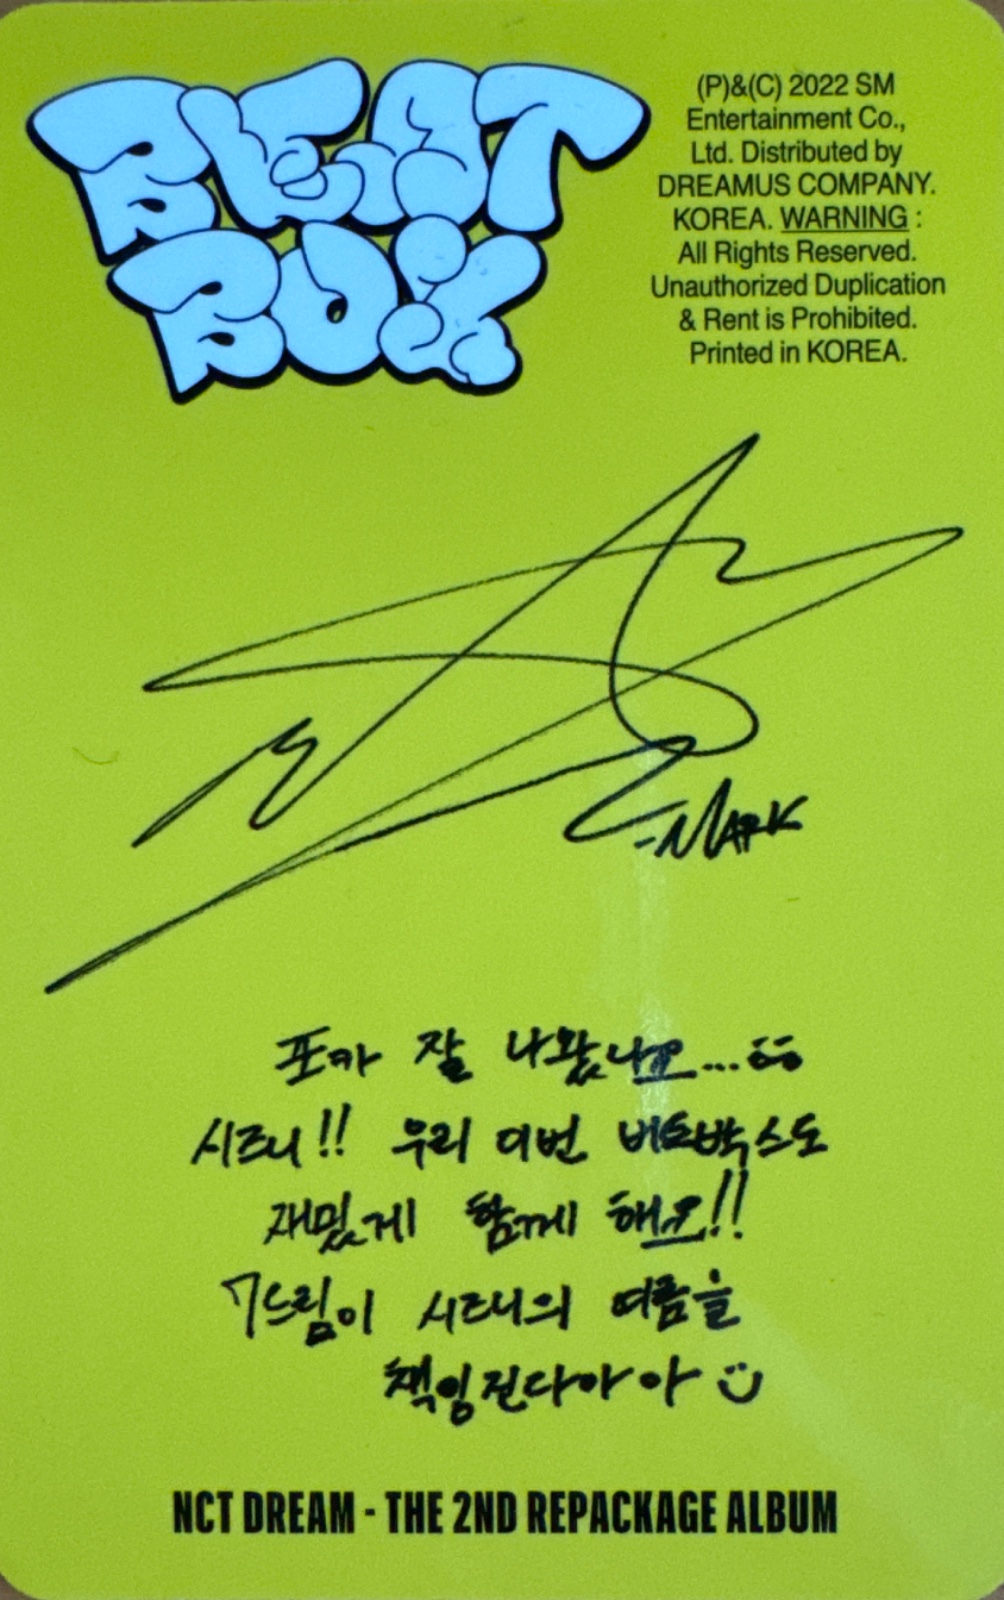 BEAT
BOX
(P)&(C) 2022 SM
Entertainment Co.,
Ltd. Distributed by
DREAMUS COMPANY.
KOREA. WARNING :
All Rights Reserved.
Unauthorized Duplication
& Rent is Prohibited.
Printed in KOREA.
-MARK
포카 잘 나왔나요...
시즈니!! 우리 이번 비트박스도
재밌게 함께 해요!!
7드림이 시즈니의 여름을
책임진다아아
NCT DREAM - THE 2ND REPACKAGE ALBUM